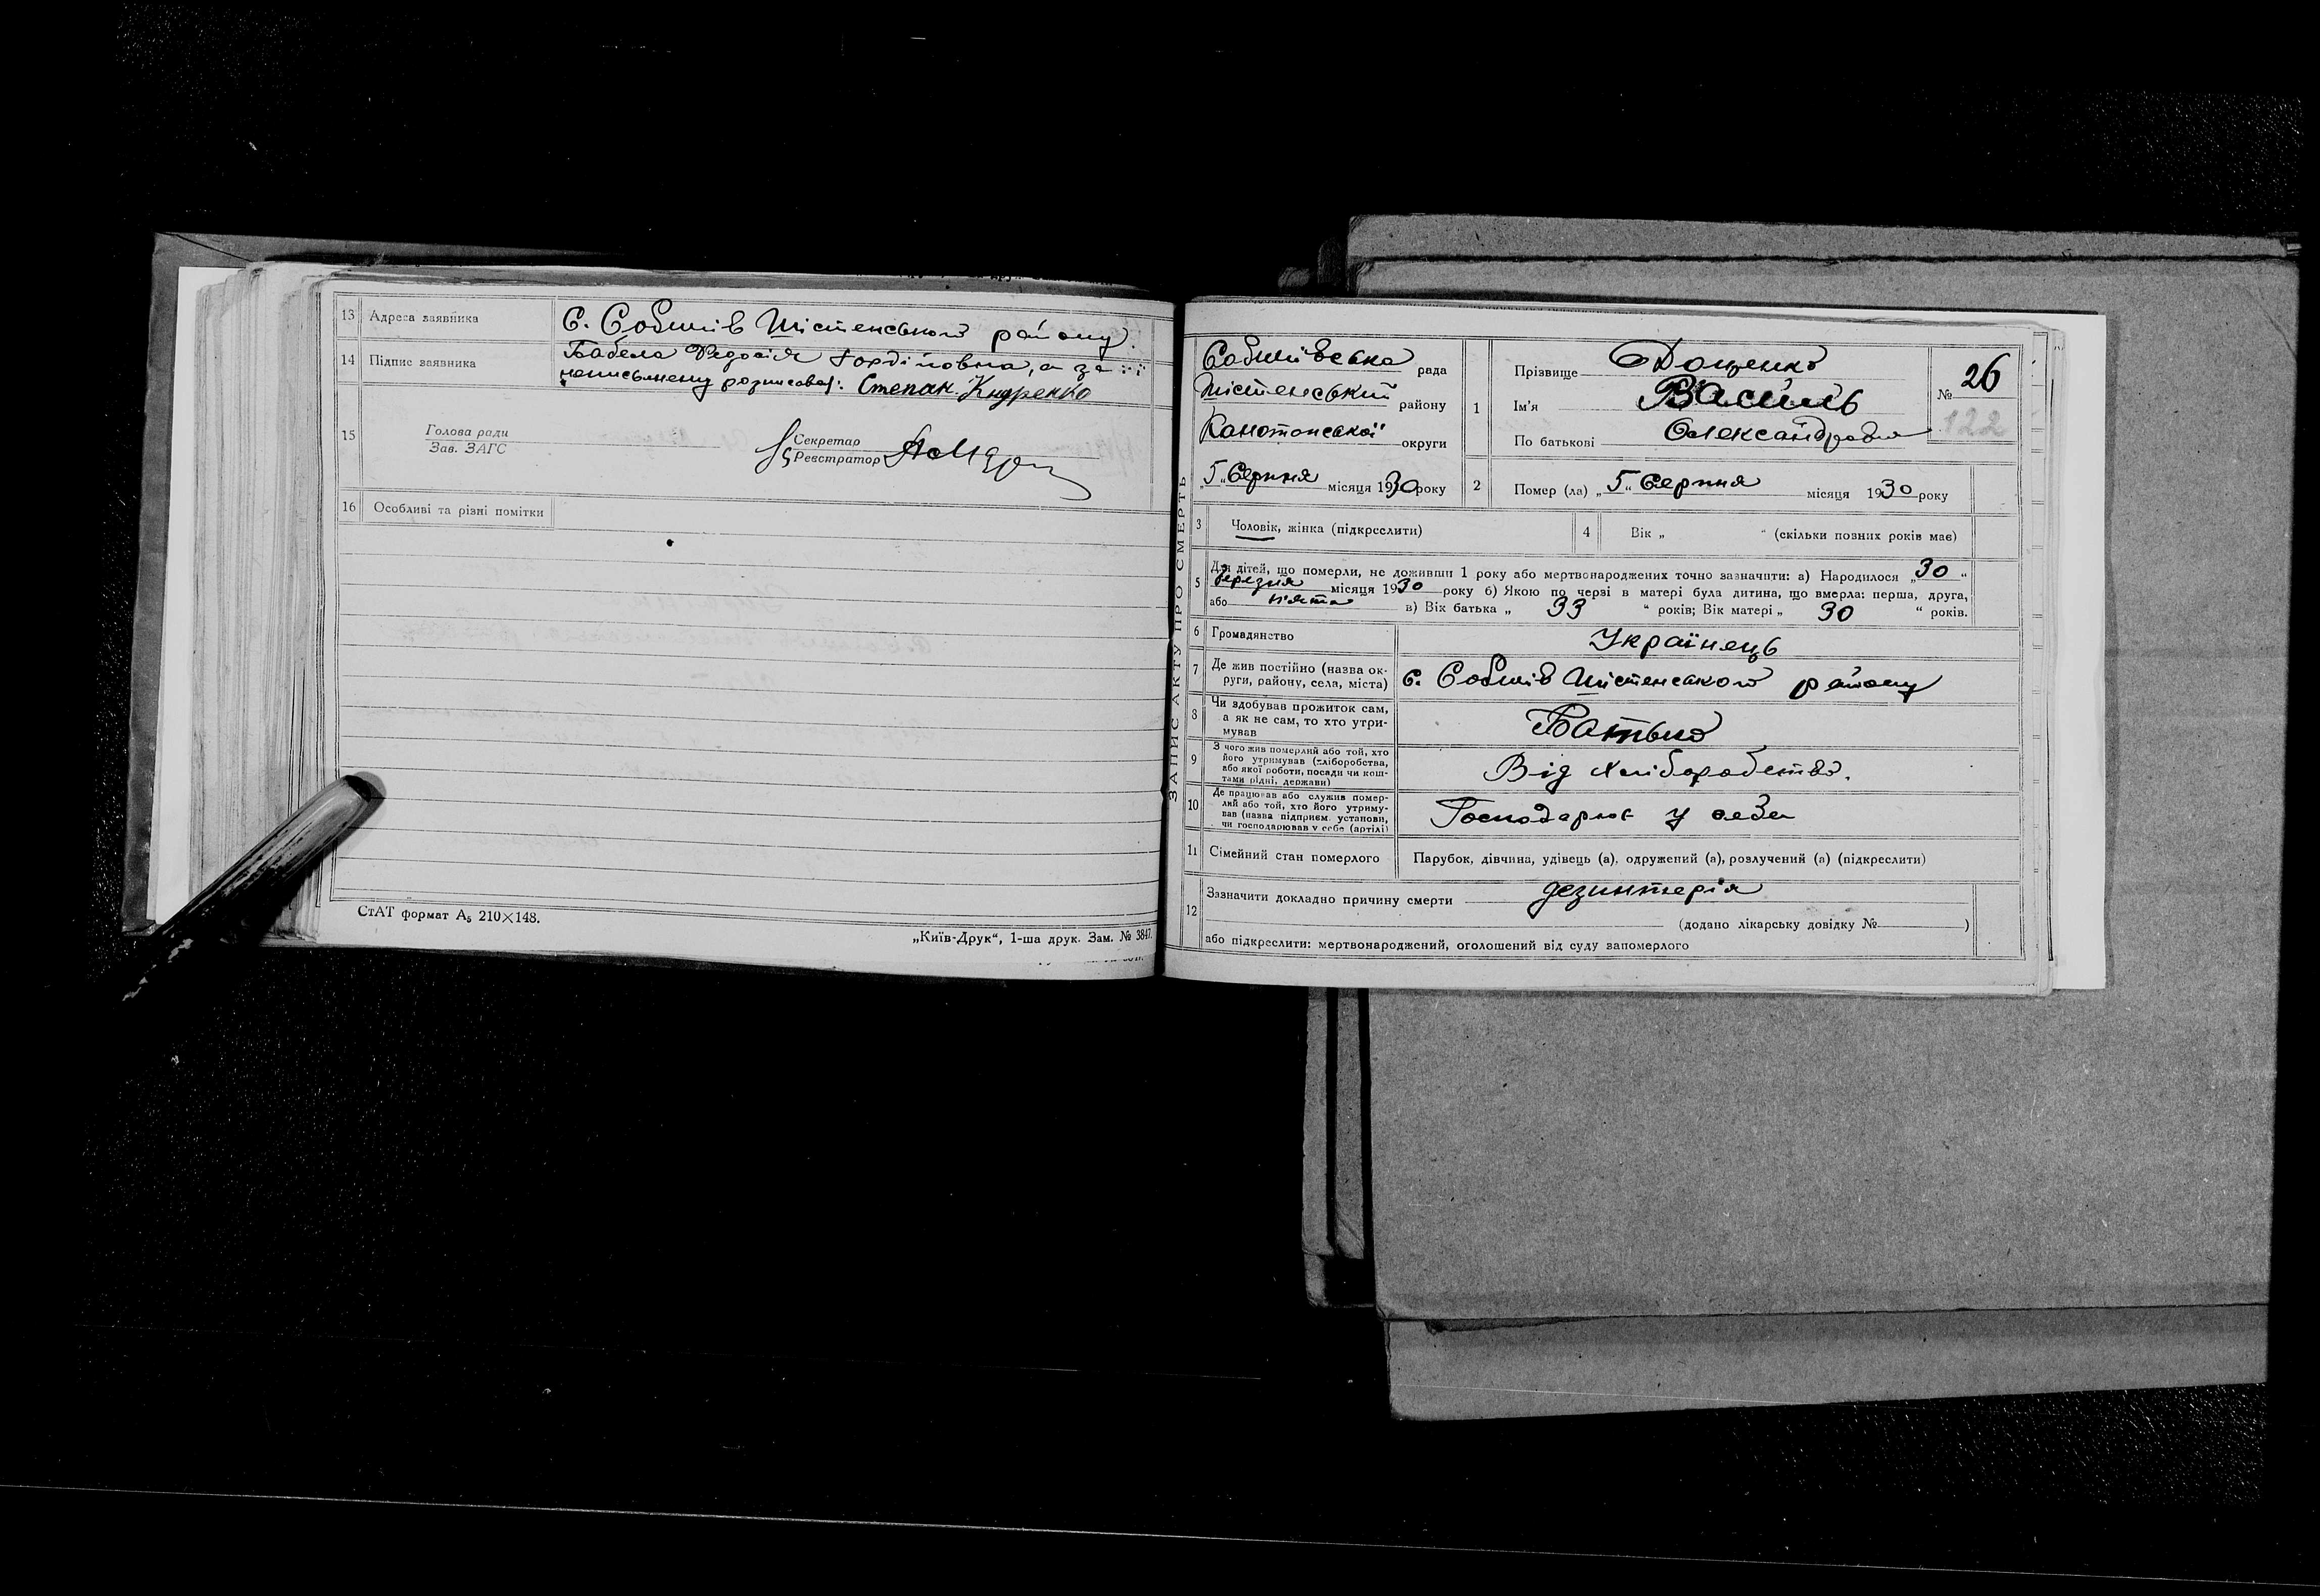 13 Адреса заявника С. Собичів Шістенського району.
14 Підпис заявника Бабела Федосія Гордіїовна, а за її
неписьмену розписовсь: Степан Кндренко
15 Голова ради
Зав. ЗАГС
Секретар
Реєстратор
16 Особливі та різні помітки
СтАТ формат А₅ 210×148.
„Київ-Друк“, 1-ша друк. Зам. № 3847.
ЗАПИС АКТУ ПРО СМЕРТЬ
Собичівська рада
Шістенський району
Конотопської округи
„5„ Серпня місяця 1930 року
1 Прізвище Доценко
Ім'я Василь
По батькові Олександрович
№ 26
122
2 Помер (ла) „5„ Серпня місяця 1930 року
3 Чоловік, жінка (підкреслити)
4 Вік „ “ (скільки повних років має)
5 Для дітей, що померли, не доживши 1 року або мертвонароджених точно зазначити: а) Народилося „30“
березня місяця 1930 року б) Якою по черзі в матері була дитина, що вмерла: перша, друга,
або п'ята в) Вік батька „ 33 “ років; Вік матері „ 30 “ років.
6 Громадянство Українець
7 Де жив постійно (назва ок-
руги, району, села, міста) с. Собичів Шістенського району
8 Чи здобував прожиток сам,
а як не сам, то хто утри-
мував Батько
9 З чого жив померлий або той, хто
його утримував (хліборобства,
або якої роботи, посади чи кош-
тами рідні, держави) Від хліборобства.
10 Де працював або служив помер-
лий або той, хто його утриму-
вав (назва підприєм. установи,
чи господарював у себе (артілі) Господарює у себе
11 Сімейний стан померлого Парубок, дівчина, удівець (а), одружений (а), розлучений (а) (підкреслити)
12 Зазначити докладно причину смерти дезинтерія
(додано лікарську довідку № )
або підкреслити: мертвонароджений, оголошений від суду запомерлого